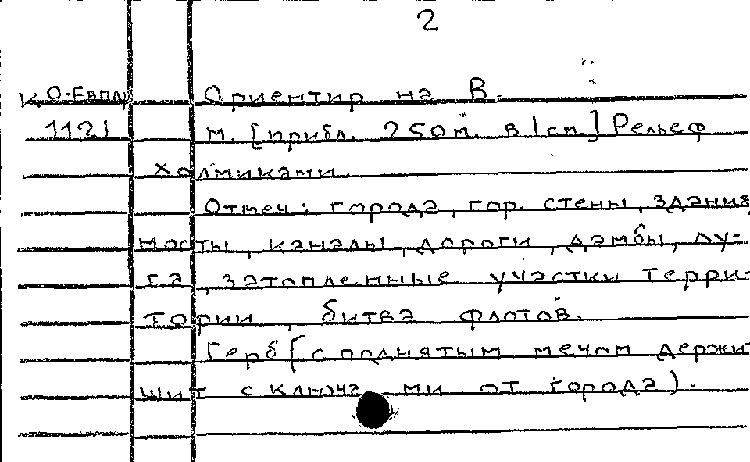 2
К О-Евпл Ориентир на В.
1121 м. [прибл. 250м. в 1см.] Рельеф
холмиками.
Отмеч: города, гор. стены, здания
мосты, каналы, дороги, дамбы, лу-
га, затопленные участки терри-
тории, битва флотов.
Герб (с поднятым мечом держи
щит с ключа ми от города).